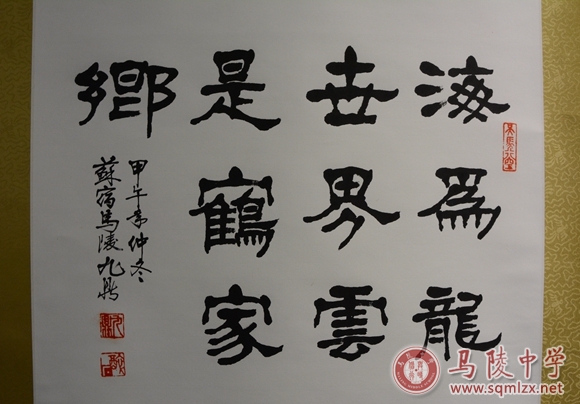 海為龍
世界雲
是鶴家
鄉
甲午年仲冬
蘇宿馬陵九鼎
马陵中学
www.sqmlzx.net